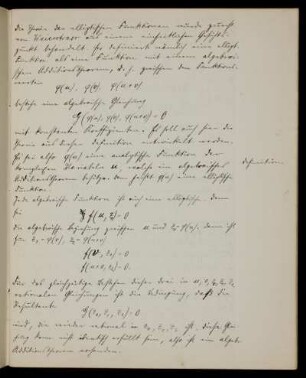 Die Theorie der elliptischen Funktionen wurde zuerst
von Weierstrass aus einem einheitlichen Gesichts-
punkt behandelt. Er definiert nämlich eine ellipt.
Funktion als eine Funktion mit einem algebrai-
schen Additionstheorem, d. h. zwischen den Funktions-
werten
φ(u), φ(v), φ(u+v)
bestehe eine algebraische Gleichung
G(φ(u), φ(v), φ(u+v)) = 0
mit konstanten Koeffizienten. Es soll auch hier die
Theorie aus dieser Definition entwickelt werden.
Es sei also φ(u) eine analytische Funktion der
komplexen Variabeln u, welche ein algebraisches
Additionstheorem besitze, dann heißt φ(u) eine elliptische
Funktion.
Definition
Jede algebraische Funktion ist auch eine elliptische, denn
sei
f(u, z) = 0
die algebraische Beziehung zwischen u und z = φ(u), dann ist
für
f(v, z₁) = 0
f(u+v, z₂) = 0
Für das gleichzeitige Bestehen dieser drei in u, v
rationalen Gleichungen ist die Bedingung, daß die
Resultante
= 0
sind, die wieder rational in ist, diese
ist also ein algebr.
Additionstheorem vorhanden.